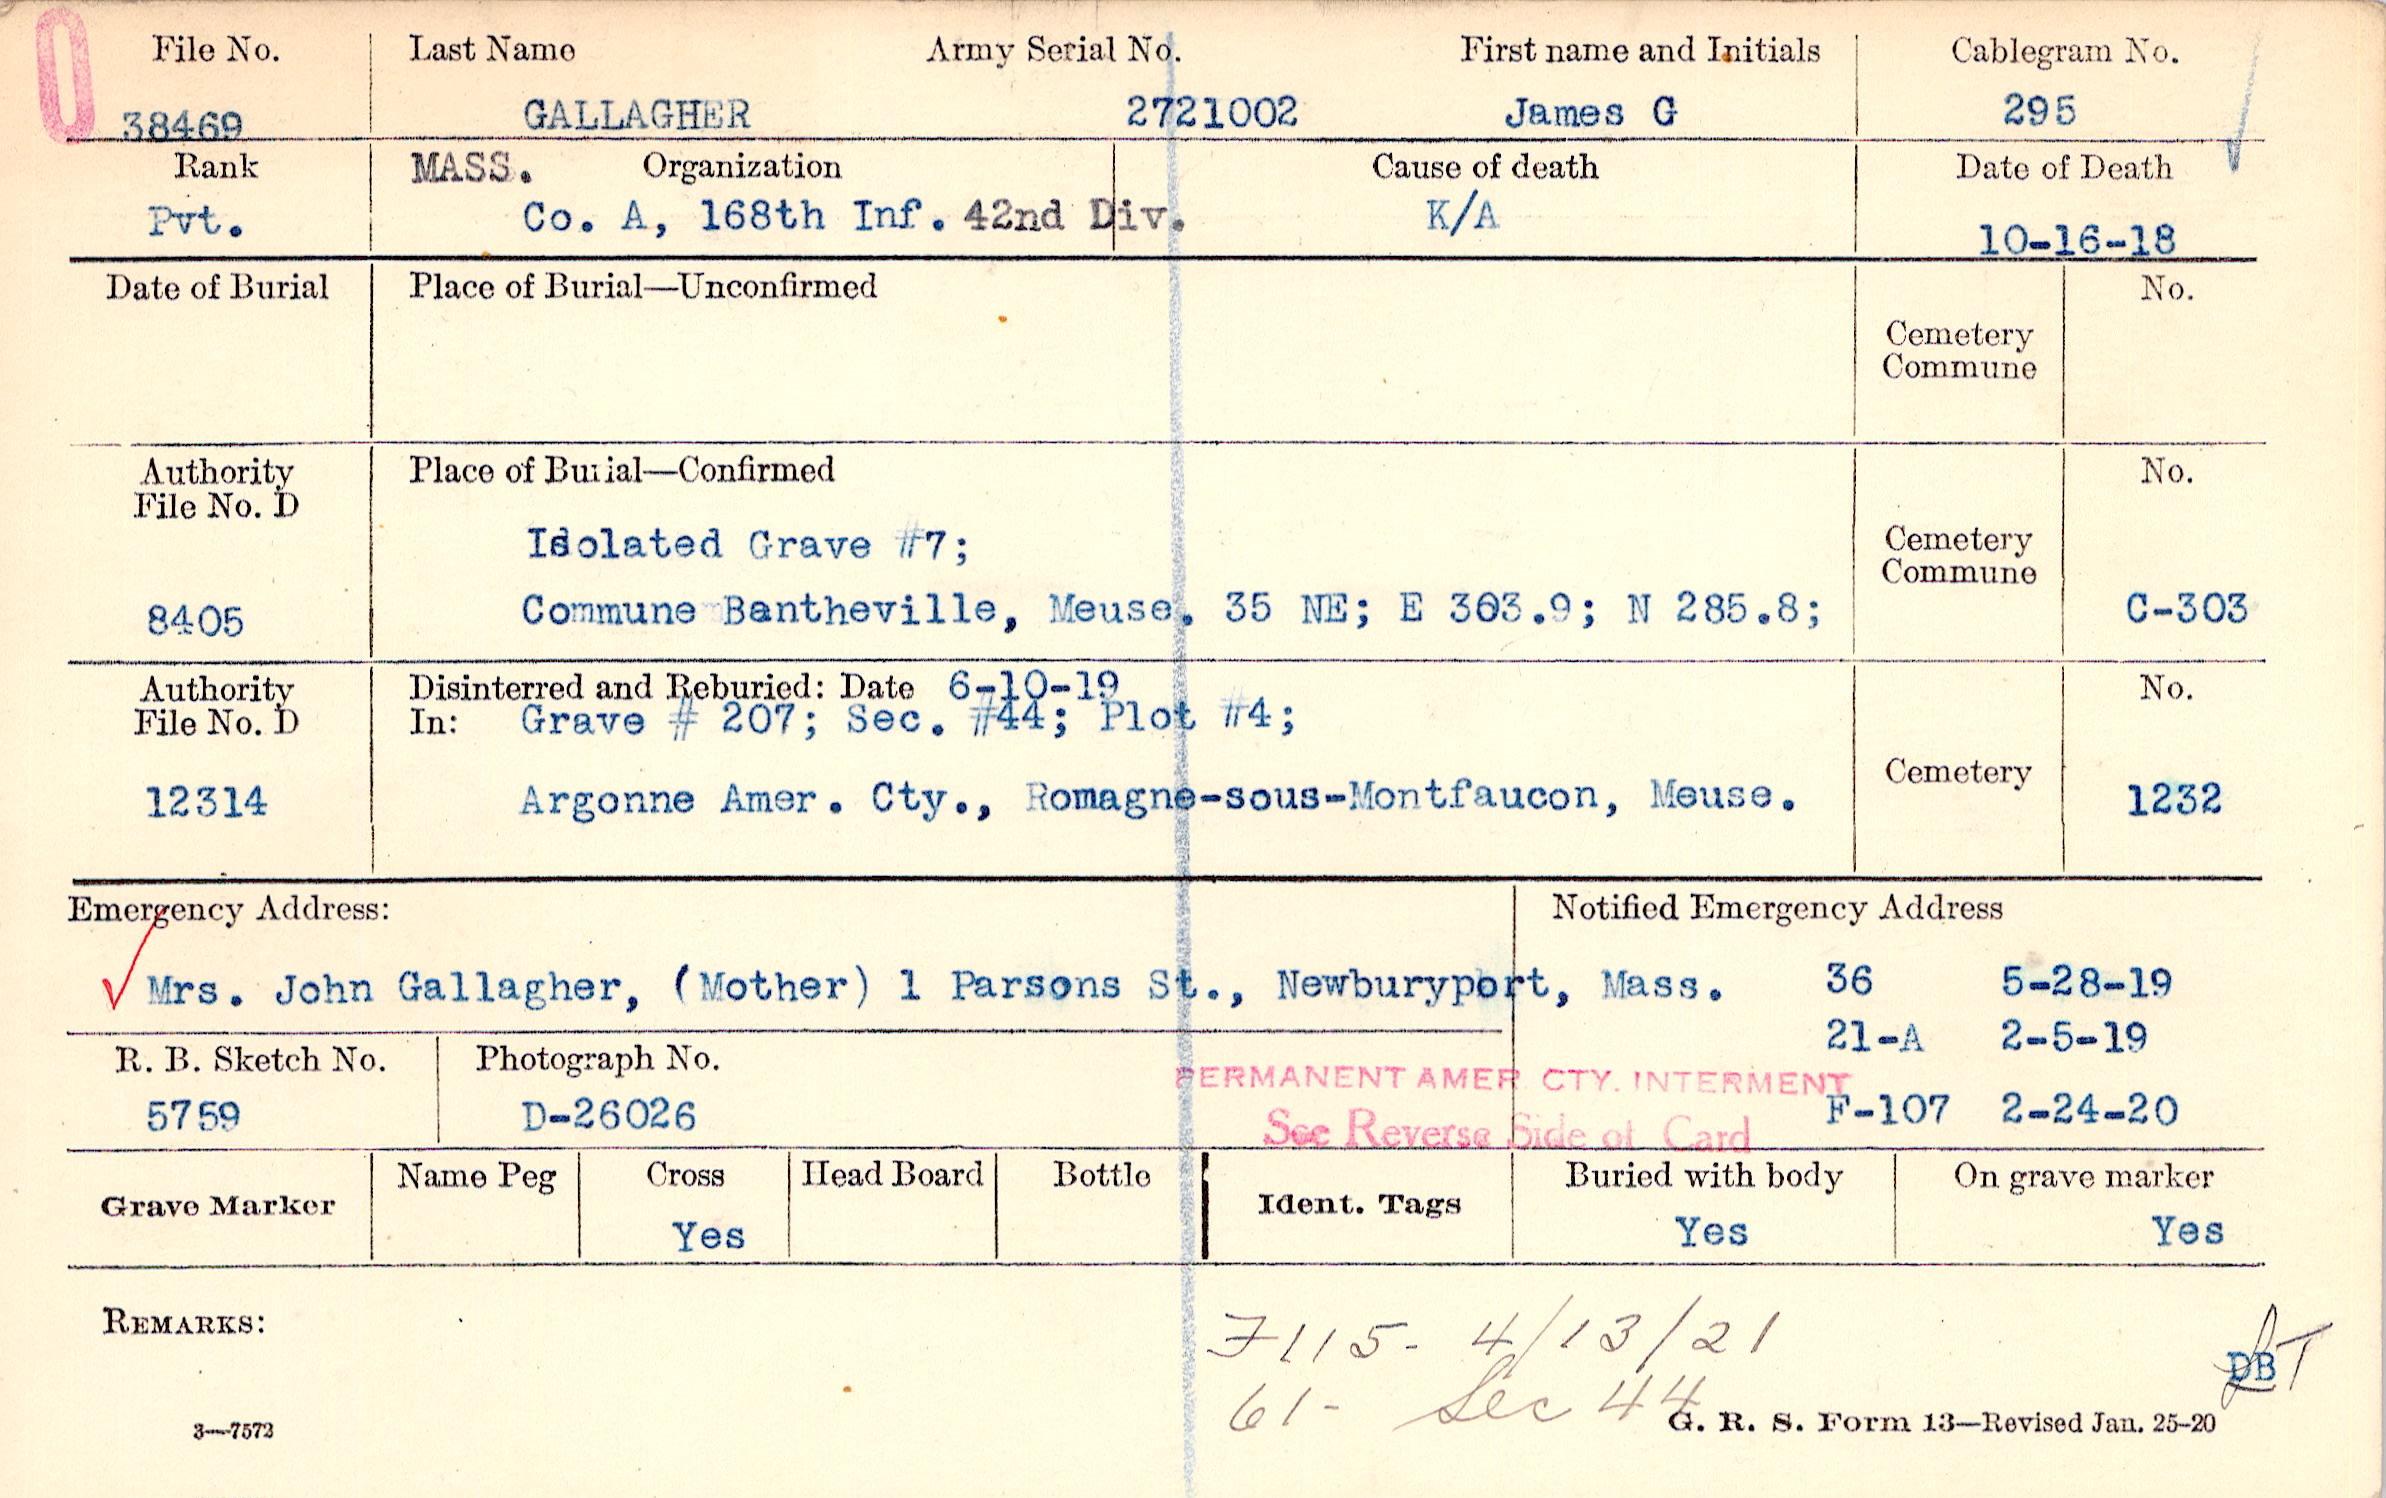 File No. Last Name Army Serial No. First name and Initials Cablegram No.
38469 GALLAGHER 2721002 James G 295
Rank MASS. Organization Cause of death Date of Death
Pvt. Co. A, 168th Inf. 42nd Div. K/A 10-16-18
Date of Burial Place of Burial—Unconfirmed No.
Cemetery
Commune
Authority Place of Burial—Confirmed No.
File No. D
Isolated Grave #7;
Cemetery
Commune
8405 Commune Bantheville, Meuse. 35 NE; E 303.9; N 285.8; C-303
Authority Disinterred and Reburied: Date 6-10-19 No.
File No. D In: Grave # 207; Sec. #44; Plot #4;
Cemetery
12314 Argonne Amer. Cty., Romagne-sous-Montfaucon, Meuse. 1232
Emergency Address: Notified Emergency Address
Mrs. John Gallagher, (Mother) 1 Parsons St., Newburyport, Mass. 36 5-28-19
21-A 2-5-19
R. B. Sketch No. Photograph No.
PERMANENT AMER. CTY. INTERMENT
5759 D-26026 F-107 2-24-20
See Reverse Side of Card
Grave Marker Name Peg Cross Head Board Bottle Ident. Tags Buried with body On grave marker
Yes Yes Yes
REMARKS:
F115- 4/13/21
DB
61- Sec 44
3—7572 G. R. S. Form 13—Revised Jan. 25-20